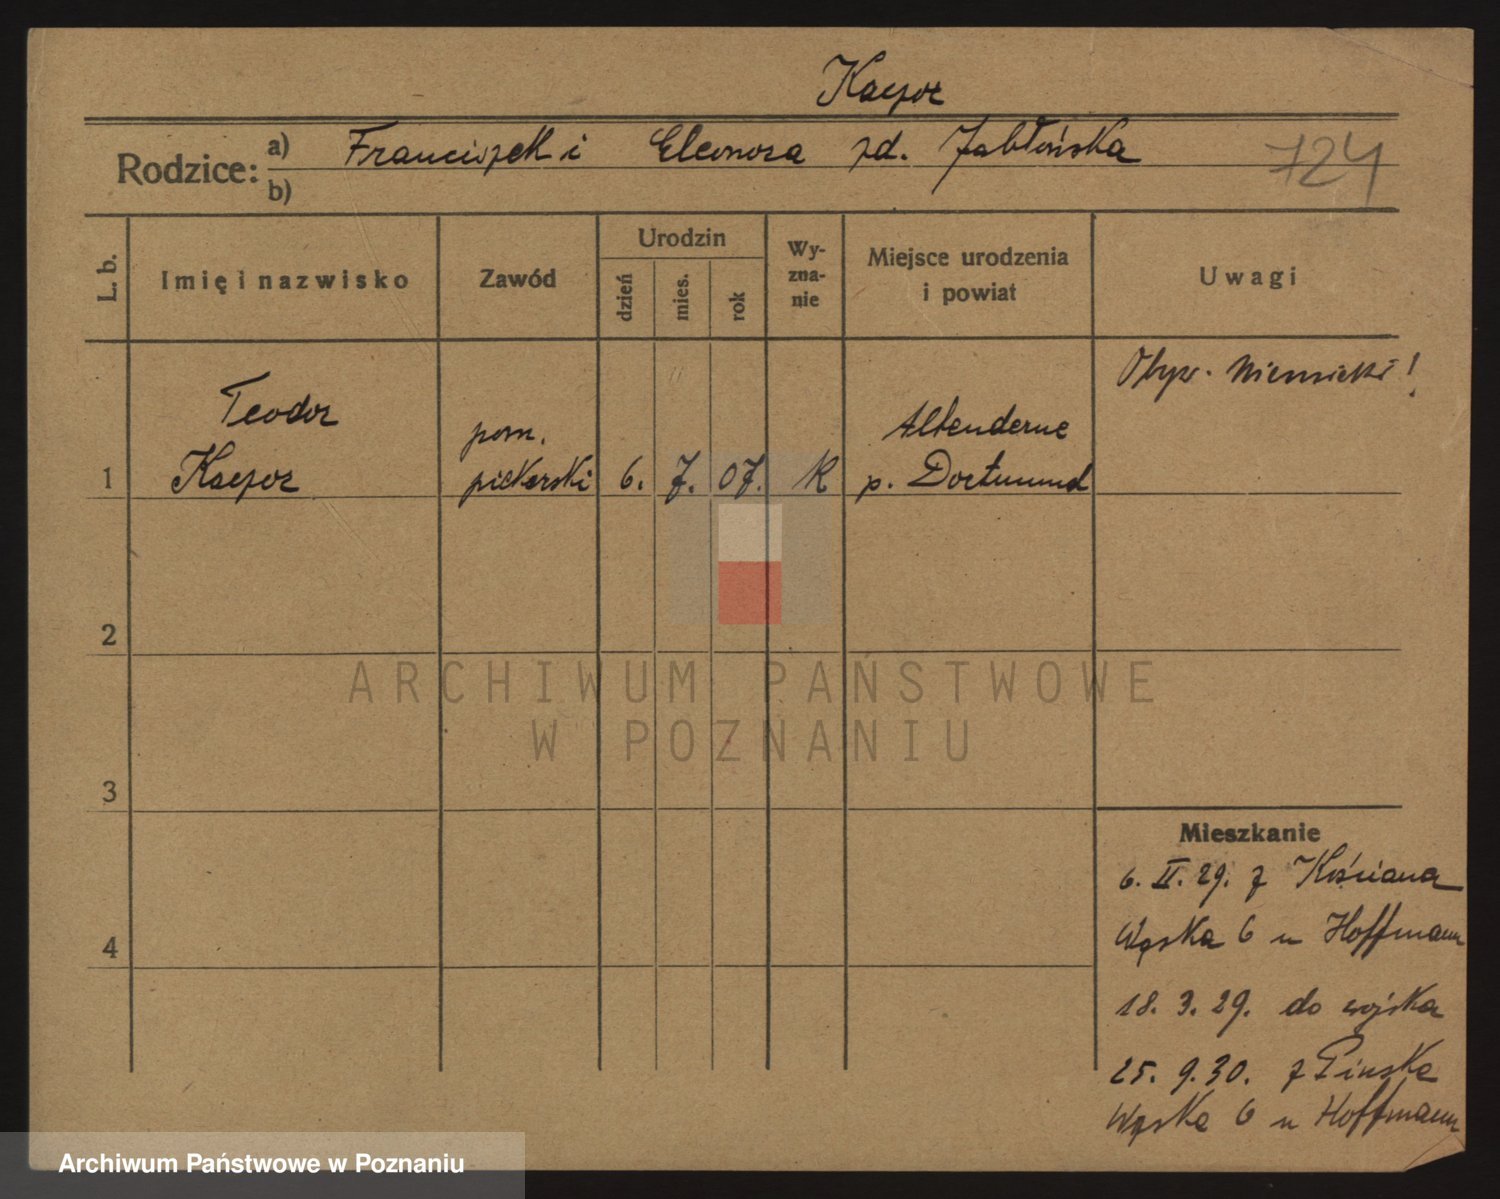 Kacpor
Rodzice: a) Franciszek i Eleonora zd. Jabłońska
724
b)
L. b.
Imię i nazwisko
Zawód
Urodzin
dzień
mies.
rok
Wy-
zna-
nie
Miejsce urodzenia
i powiat
Uwagi
Obyw. niemiecki!
Teodor
pom.
Altenderne
1 Kacpor piekarski 6. 7. 07. K p. Dortmund
2
3
4
Mieszkanie
6. II. 29. z Kościana
Wąska 6 u Hoffmann
18. 3. 29. do wojska
25. 9. 30. z Pinska
Wąska 6 u Hoffmann
ARCHIWUM PAŃSTWOWE
W POZNANIU
Archiwum Państwowe w Poznaniu